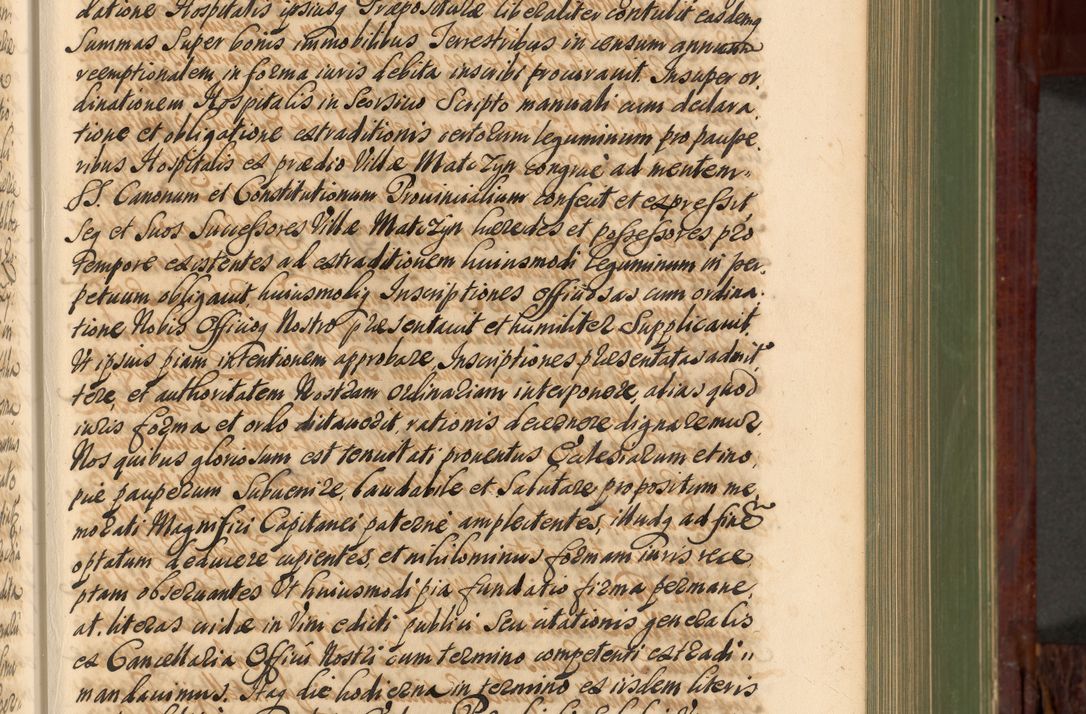 datione Hospitalis ipsiusq Præpositurae liberaliter contulit easdemq
Summas Super bonis immobilibus Terrestribus in censum annuum
reemptionalem in forma iuris debita inscribi procuravit. Insuper or.
dinationem Hospitalis in Seorsivo Scripto manuali cum declara.
tione et obligatione extraditionis certorum leguminum pro paupe.
ribus Hospitalis ex prædio Villæ Matczyn congrue ad mentem
SS. Canonum et Constitutionum Provincialium confecit et expressit,
Seq et Suos Successores Villæ Matczyn hæredes et possessores pro
Tempore existentes ad extraditionem huiusmodi leguminum in per.
petuum obligavit, huiusmodiq Inscriptiones officiosas cum ordina.
tione Nobis Officioq Nostro præsentavit et humiliter Supplicavit,
Ut ipsius piam intentionem approbare, Inscriptiones præsentatas admit
tere, et authoritatem Nostram ordinariam interponere, alias quod
iuris forma et ordo dictaverit, rationis decernere dignaremur.
Nos quibus gloriosum est tenuitati proventus Ecclesiarum et ino.
piæ pauperum Subvenire, laudabile et Salutare propositum me.
morati Magnifici Capitanei paterne amplectentes, illudq ad finem
optatum deducere cupientes, et nihilominus formam iuris rece
ptam observantes Ut huiusmodi pia fundatio firma permane.
at. literas cridæ in Vim edicti publici Seu citationis generalis
ex Cancellaria Officii Nostri cum termino competenti extradi
mandavimus. Itaq die hodierna in termino ex iisdem literis